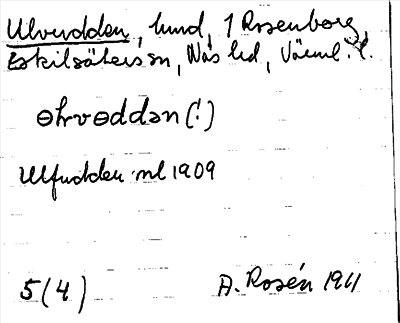 Ulvudden, lund, 1 Rosenborg
Eskilsäters sn, Näs hd, Värml. l.
ɵlvɵddən (!)
Ulfudden ml 1909
5 (4) A. Rosén 1911